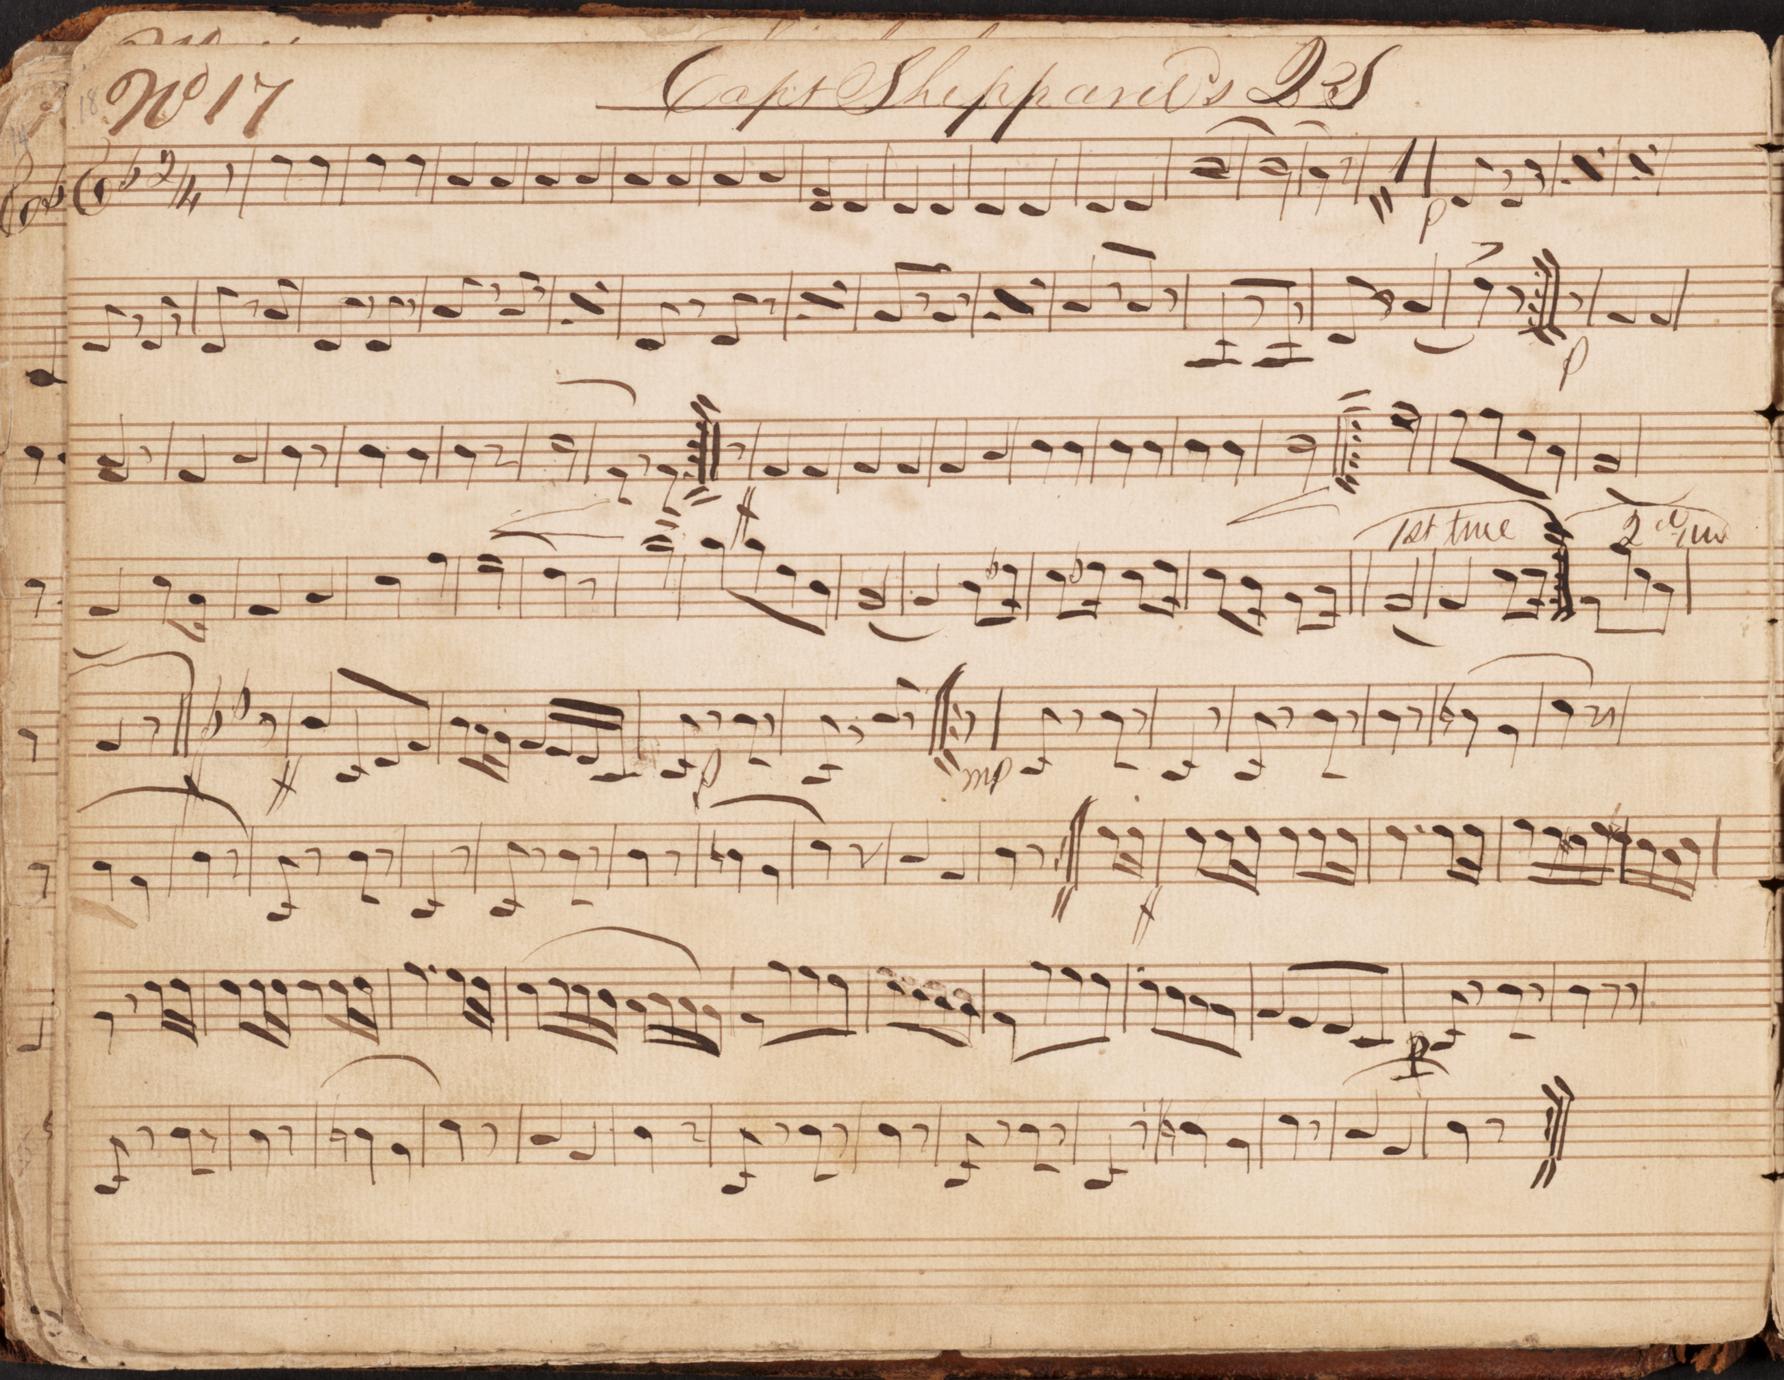 No 17 Capt Sheppard's 2 S
2/4
p
p
1st time 2d time
p
mp
p